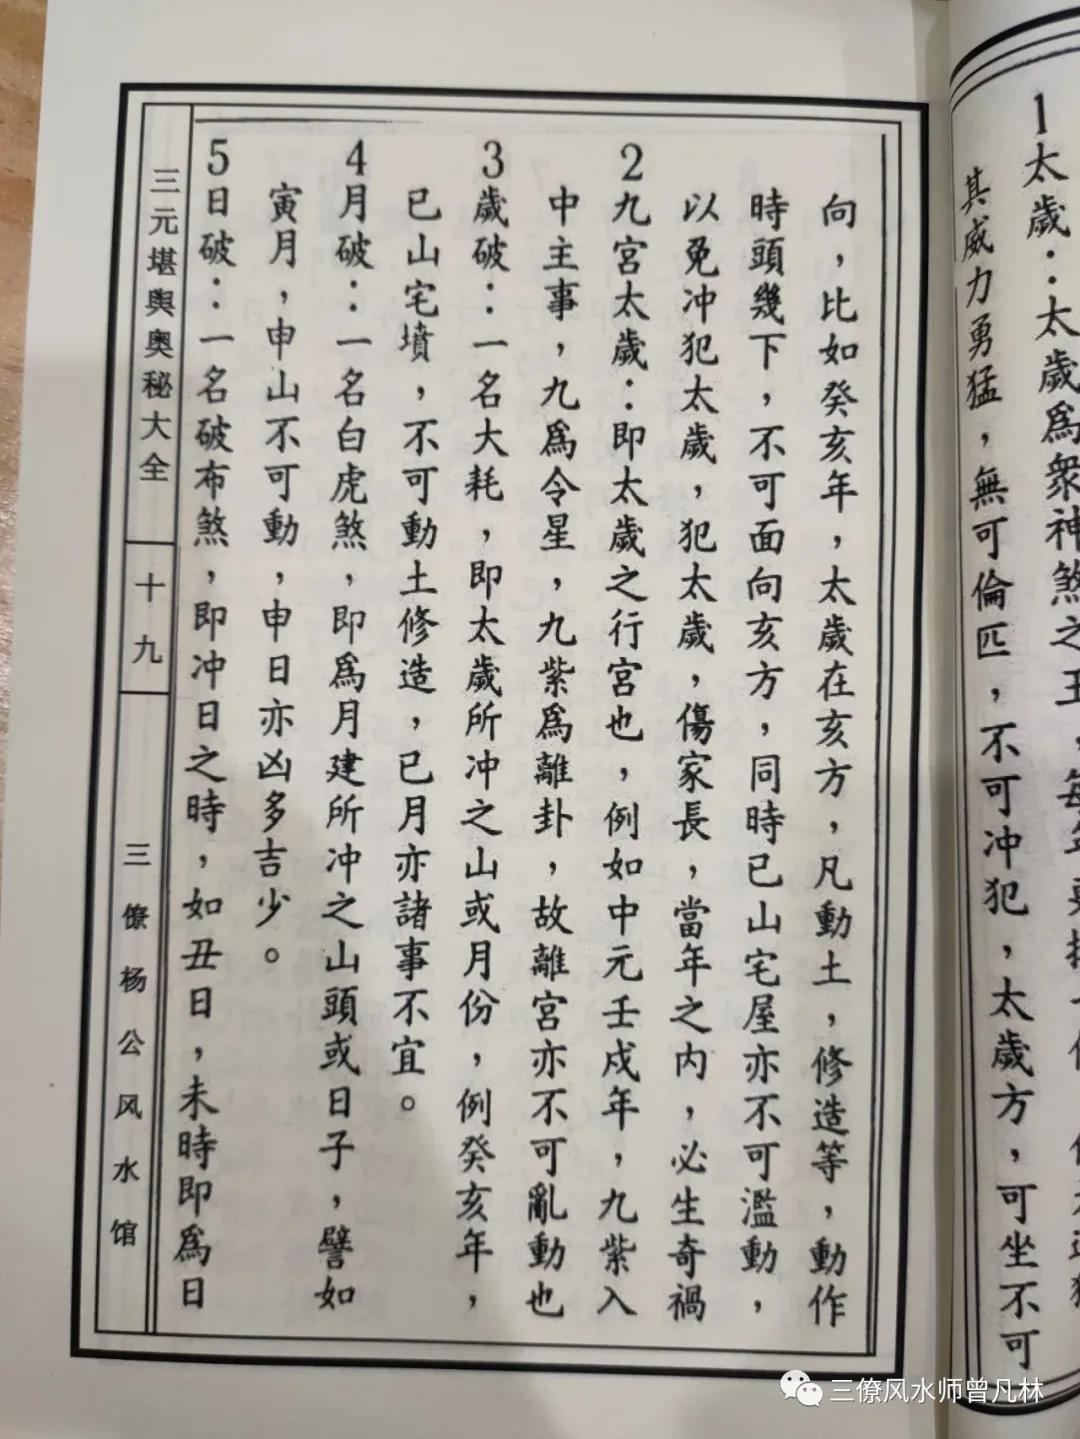 1太歲：太歲爲衆神煞之王，每年
其威力勇猛，無可倫匹，不可冲犯，太歲方，可坐不可
向，比如癸亥年，太歲在亥方，凡動土，修造等，動作
時頭幾下，不可面向亥方，同時巳山宅屋亦不可濫動，
以免冲犯太歲，犯太歲，傷家長，當年之内，必生奇禍
2九宮太歲：即太歲之行宮也，例如中元壬戌年，九紫入
中主事，九爲令星，九紫爲離卦，故離宮亦不可亂動也
3歲破：一名大耗，即太歲所冲之山或月份，例癸亥年，
巳山宅墳，不可動土修造，巳月亦諸事不宜。
4月破：一名白虎煞，即爲月建所冲之山頭或日子，譬如
寅月，申山不可動，申日亦凶多吉少。
5日破：一名破布煞，即冲日之時，如丑日，未時即爲日
三元堪輿奧秘大全
十九
三僚杨公风水馆
三僚风水师曾凡林